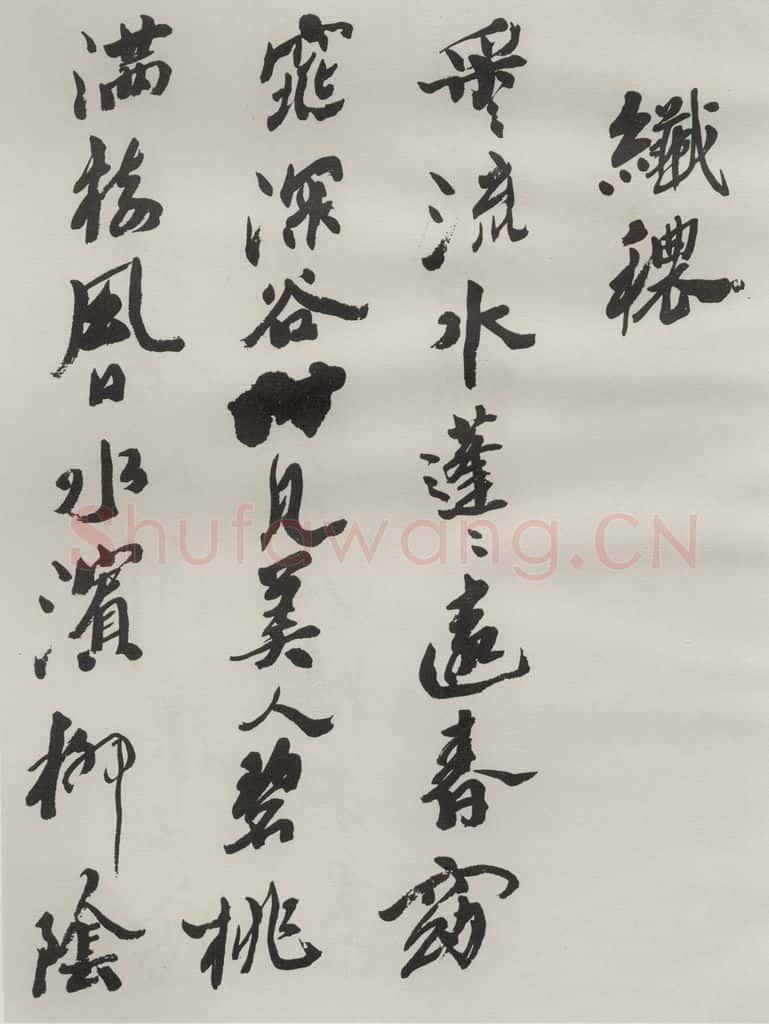 纖穠
采〻流水蓬〻遠春窈
窕深谷時見美人碧桃
滿樹風日水濱柳陰
Shufawang.CN